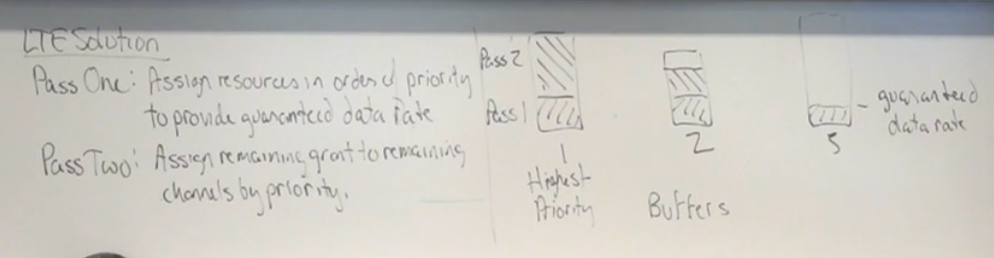 LTE Solution
Pass One: Assign resources in order of priority
to provide guaranteed data rate
Pass Two: Assign remaining grant to remaining
channels by priority.
Pass 2
Pass 1
1
Highest
Priority
2
Buffers
5
guaranteed
data rate